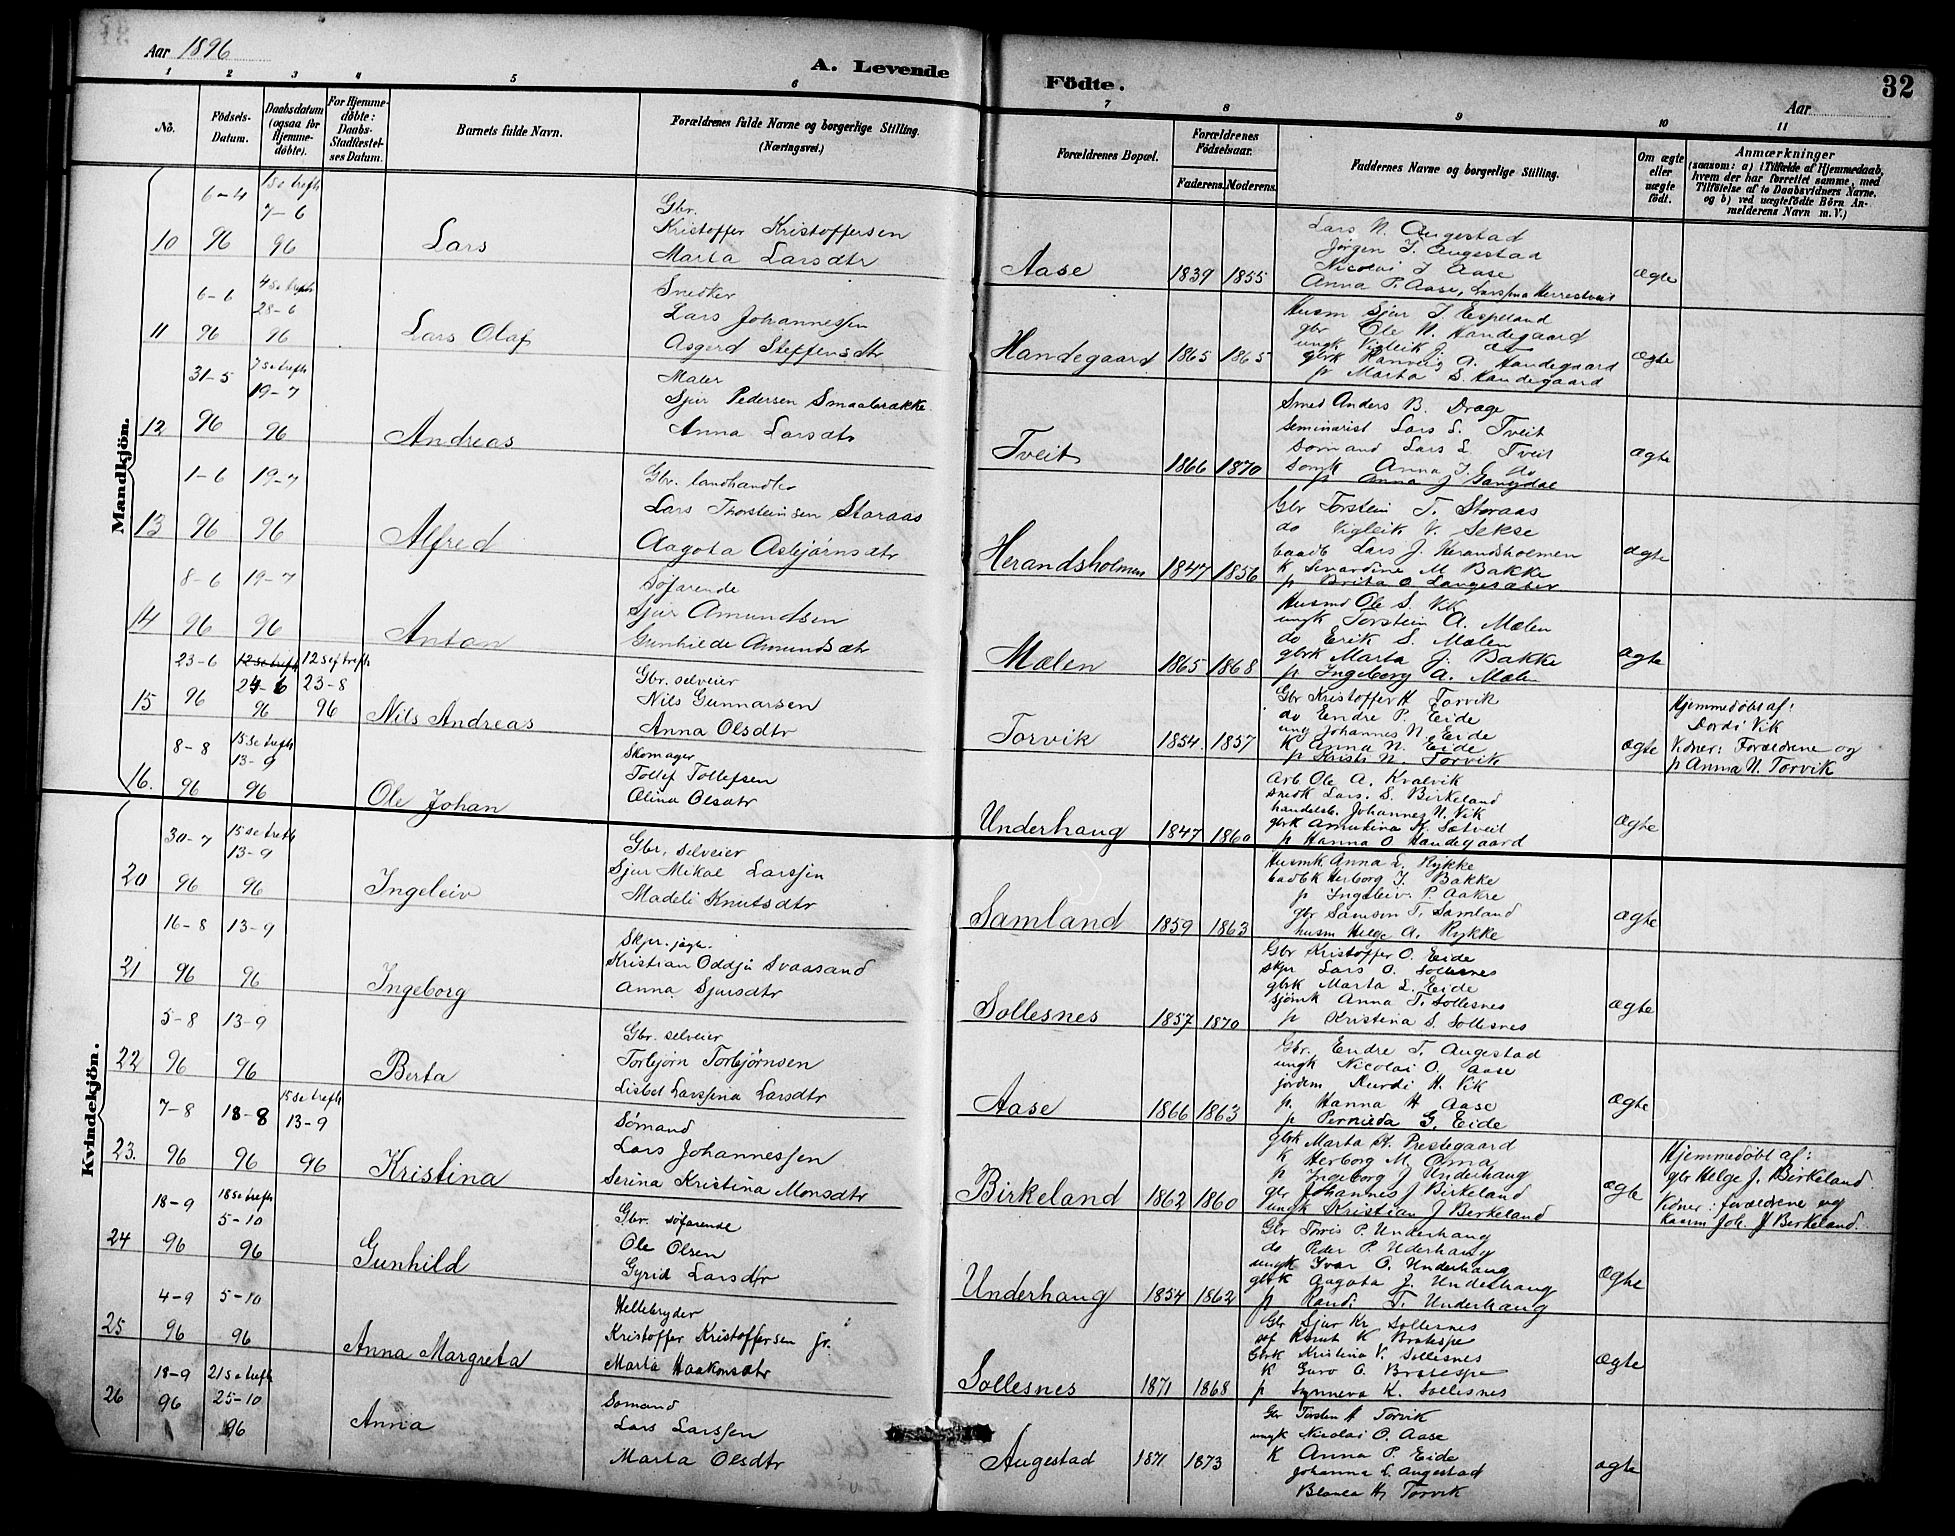 Aar 1896
A. Levende Födte.
32
Aar
1 2 3 4 5 6 7 8 9 10 11
No.
Födsels-Datum.
Daabsdatum (ogsaa for Hjemme-döbte).
For Hjemme-döbte: Daabs-Stadfæstel-ses Datum.
Barnets fulde Navn.
Forældrenes fulde Navne og borgerlige Stilling. (Næringsvei.)
Forældrenes Bopæl.
Forældrenes Födselsaar.
Faderens. Moderens.
Faddernes Navne og borgerlige Stilling.
Om ægte eller uægte födt.
Anmærkninger
(saasom: a) i Tilfælde af Hjemmedaab, hvem der har forrettet samme, med Tilföielse af to Daabsvidners Navne. og b) ved uægtefödte Börn An-melderens Navn m. V.)
Mandkjön.
10
6-4 96
1 se trefh 7-6 96
Lars
Gbr.
Kristoffer Kristoffersen
Marta Larsdtr
Aase
1839 1855
Lars N. Augestad
Jørgen T. Augestad
Nicolai J Aase
Anna P. Aase, Larsina Herrestveit
ægte
11
6-6 96
4 se trefh 28-6 96
Lars Olaf
Snedker
Lars Johannessen
Asgerd Steffensdtr
Handegaard
1865 1865
Husm Sjur J. Espeland
gbr Ole N. Handegaard
ungk Vigleik J. do
gbrk Hannas A. Handegaard
p Marta S. Handegaard
ægte
12
31-5 96
7 se trefh 19-7 96
Andreas
Maler
Sjur Pedersen Smaabrække
Anna Larsdtr
Tveit
1866 1870
Smed Anders B. Drage
seminarist Lars L. Tveit
Sømand Lars L. Tveit
Sømk Anna J. do
p Anna J Gangdal
ægte
13
1-6 96
19-7 96
Alfred
Gbr. landhandler
Lars Thorsteinsen Storaas
Aagota Asbjørnsdtr
Herandsholmen
1847 1856
Gbr Torstein T. Storaas
do Vigleik V. Sekse
baadb Lars J. Herandsholmen
k Sevardine M Bakke
p Brita O. Langesæter
ægte
14
8-6 96
19-7 96
Anton
Søfarende
Sjur Amundsen
Gunhilde Amundsdtr
Mælen
1865 1868
Husmd Ole S. Vik
ungk Torstein A. Mælen
do Erik S. Mælen
gbrk Marta J. Bakke
p Ingeborg A. Mælen
ægte
15
23-6 96
12 se trefh 24-6 96
12 sef trefh 23-8 96
Nils Andreas
Gbr. selveier
Nils Gunnarsen
Anna Olsdtr
Torvik
1854 1857
Gbr Kristoffer H Torvik
do Endre P. Eide
ung Johannes N. Eide
K Anna N. Eide
p Kristi N. Torvik
ægte
Hjemmedøbt af:
Dordi Vik
Vdner: Forældrene og
p Anna N. Torvik
16.
8-8 96
15 se trefh 13-9 96
Ole Johan
Skomager
Tollef Tollefsen
Olina Olsdtr
Underhaug
1847 1860
Arb Ole A. Kvalvik
snedk Lars. S. Birkeland
handelsb. Johannes N. Vik
gbrk Amutina K. Sætveit
p Hanna O Handegaard
ægte
Kvindekjön.
20
30-7 96
15 se trefh 13-9 96
Ingeleiv
Gbr. selveier
Sjur Mikal Larssen
Madeli Knutsdtr
Samland
1859 1863
Husmk Anna L. Rykke
baadbk Herborg J. Bakke
p Ingeleiv P. Aakre
gbr Samson T. Samland
husm Helge A. Rykke
ægte
21
16-8 96
13-9 96
Ingeborg
Skpr. jagt.
Kristian Oddju Svaasand
Anna Sjursdtr
Sollesnes
1857 1870
Gbr Kristoffer O. Eide
skpr Lars O. Sollesnes
gbrk Marta L. Eide
sjømk Anna T. Sollesnes
p Kristina S. Sollesnes
ægte
22
5-8 96
13-9 96
Berta
Gbr. selveier
Torbjørn Torbjørnsen
Lisbet Larssena Larsdtr
Aase
1866 1863
Gbr. Endre T. Augestad
ungk Nicolai O. Aase
jordem Durdi H. Vik
p. Hanna H Aase
p Pernieda G. Eide
ægte
23.
7-8 96
18-8 96
15 se trefh 13-9 96
Kristina
Sømand
Lars Johannessen
Serina Kristina Monsdtr
Birkeland
1862 1860
gbrk Marta H. Prestegaard
K Herborg M. Omna
p Ingeborg J Underhaug
gbr Johannes J Birkeland
ungk Kristian J Berkeland
ægte
Hjemmedøbt af:
gbr Helge J. Birkeland
Vdner: forældrene og
kaarm Joh. J Berkeland.
24
18-9 96
18 se trefh 5-10 96
Gunhild
Gbr. søfarende
Ole Olsen
Gyrid Larsdtr
Underhaug
1854 1862
Gbr Torris P. Underhaug
do Peder P. Uderhaug
ungk Ivar O. Underhaug
gbrk Aagota J. Underhaug
p Randi T. Underhaug
ægte
25
4-9 96
5-10 96
Anna Margreta
Hellebryder
Kristoffer Kristoffersen jr.
Marta Haakonsdtr
Sollesnes
1871 1868
Gbr Sjur Kr. Sollesnes
søf Knut K Bratespe
Gbrk Kristina V. Sollesnes
K Guro O. Bratespe
p Synneva K. Sollesnes
ægte
26
18-9 96
21 se trefh 25-10 96
Anna
Sømand
Lars Larssen
Marta Olsdtr
Augestad
1871 1873
Gbr Torsten H Torvik
ungk Nicolai O. Aase
K Anna P. Eide
Johanna L. Augestad
Blanca H. Torvik
ægte